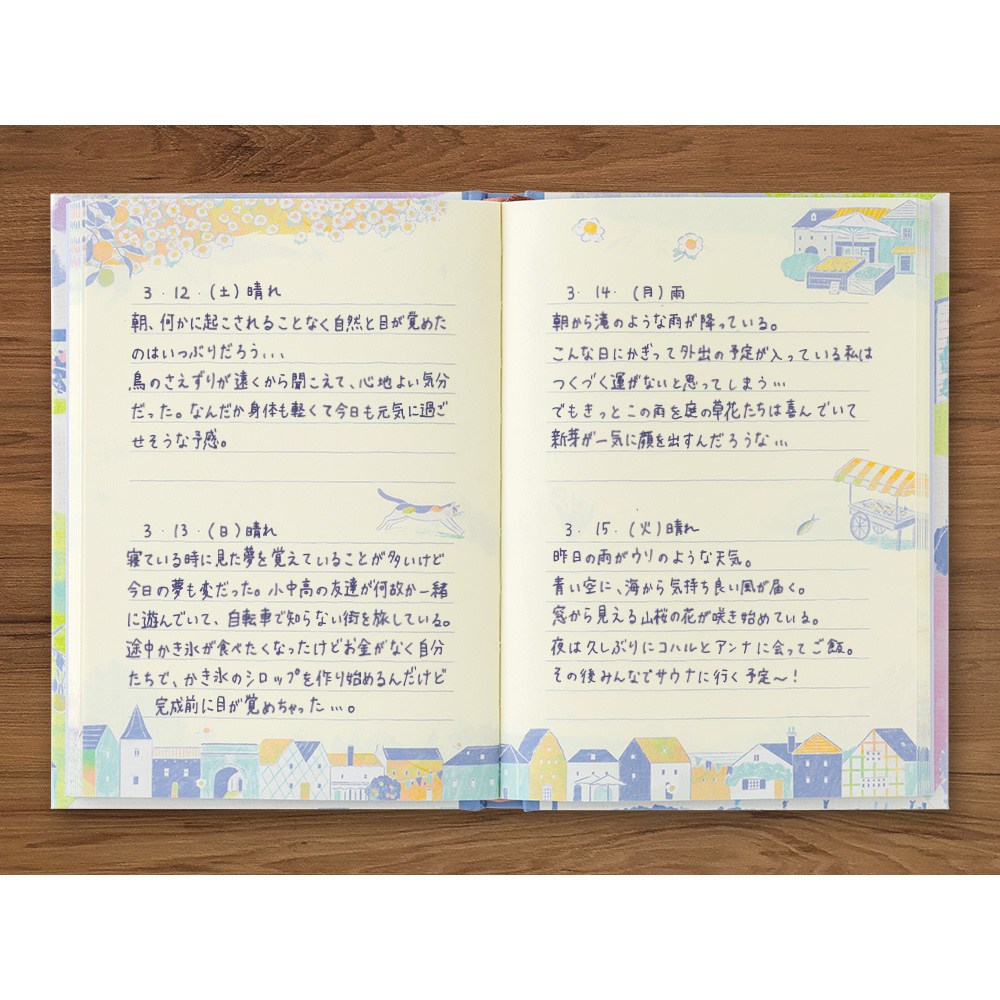 3.12.(土)晴れ
朝、何かに起こされることなく自然と目が覚めた
のはいつぶりだろう...
鳥のさえずりが遠くから聞こえて、心地よい気分
だった。なんだか身体も軽くて今日も元気に過ご
せそうな予感。
3.13.(日)晴れ
寝ている時に見た夢を覚えていることが多いけど
今日の夢も変だった。小中高の友達が何故か一緒
に遊んでいて、自転車で知らない街を旅している。
途中かき氷が食べたくなったけどお金がなく自分
たちで、かき氷のシロップを作り始めるんだけど
完成前に目が覚めちゃった...。
3.14.(月)雨
朝から滝のような雨が降っている。
こんな日にかぎって外出の予定が入っている私は
つくづく運がないと思ってしまう...
でもきっとこの雨を庭の草花たちは喜んでいて
新芽が一気に顔を出すんだろうな...
3.15.(火)晴れ
昨日の雨がウリのような天気。
青い空に、海から気持ち良い風が届く。
窓から見える山桜の花が咲き始めている。
夜は久しぶりにコハルとアンナに会ってご飯。
その後みんなでサウナに行く予定～!